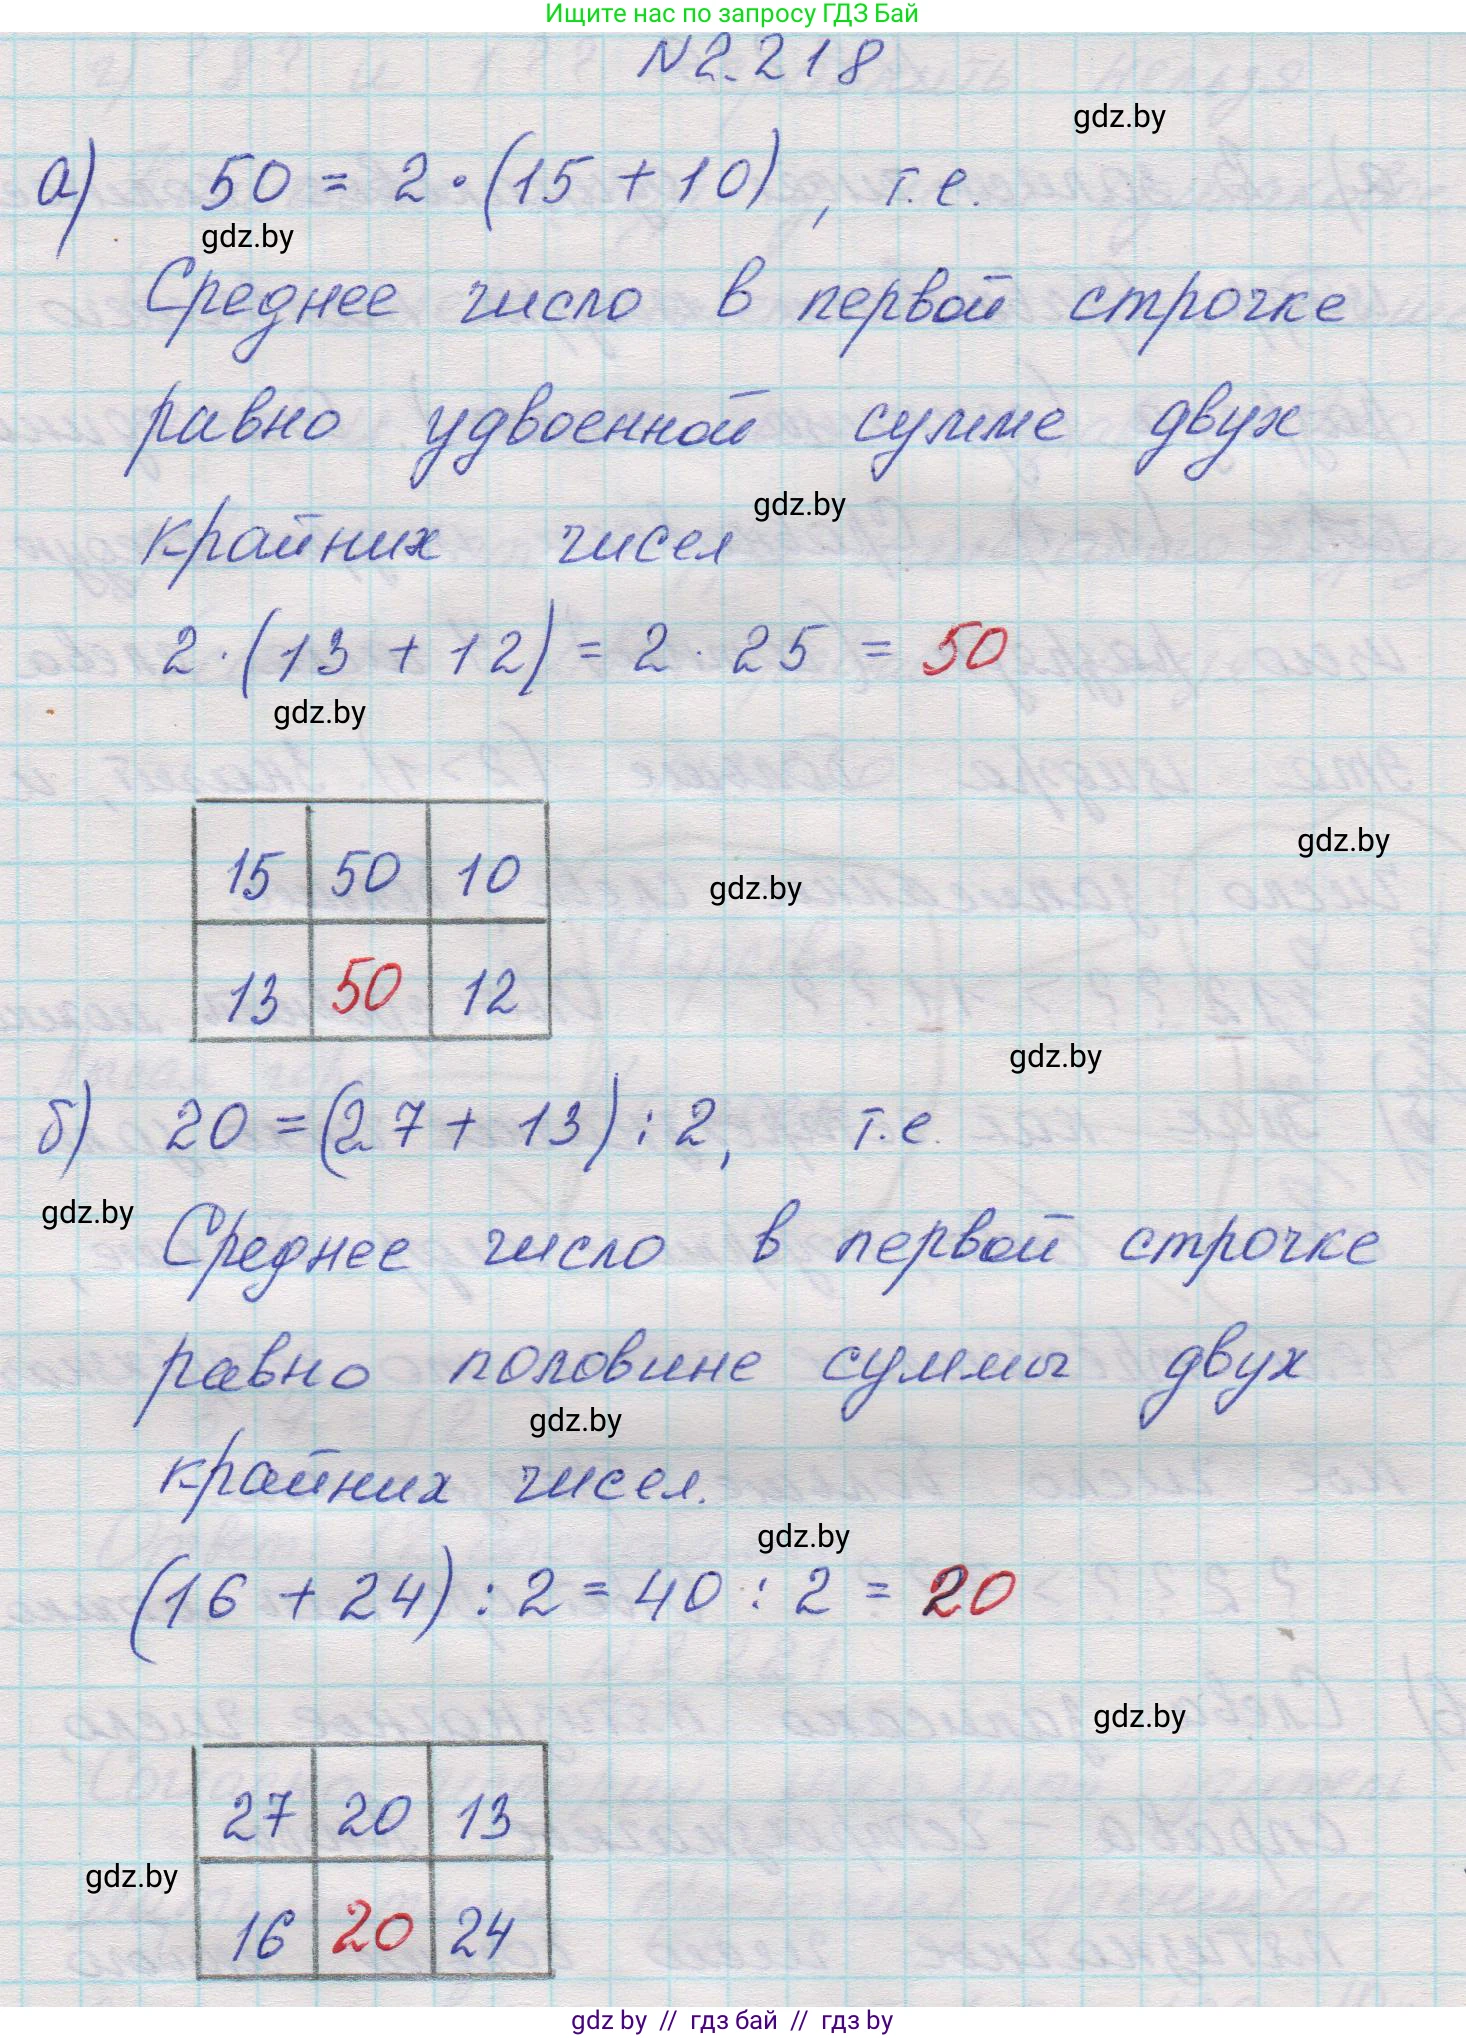 Ищите нас по запросу ГДЗ Бай
№2.218
gdz.by
а) 50 = 2 · (15 + 10), т.е.
gdz.by
Среднее число в первой строчке
равно удвоенной сумме двух
gdz.by
крайних чисел
2 · (13 + 12) = 2 · 25 = 50
gdz.by
gdz.by
15 50 10
gdz.by
13 50 12
gdz.by
б) 20 = (27 + 13) : 2, т.е.
gdz.by
Среднее число в первой строчке
равно половине суммы двух
gdz.by
крайних чисел.
gdz.by
(16 + 24) : 2 = 40 : 2 = 20
gdz.by
27 20 13
gdz.by
16 20 24
gdz by // гдз бай // гдз by